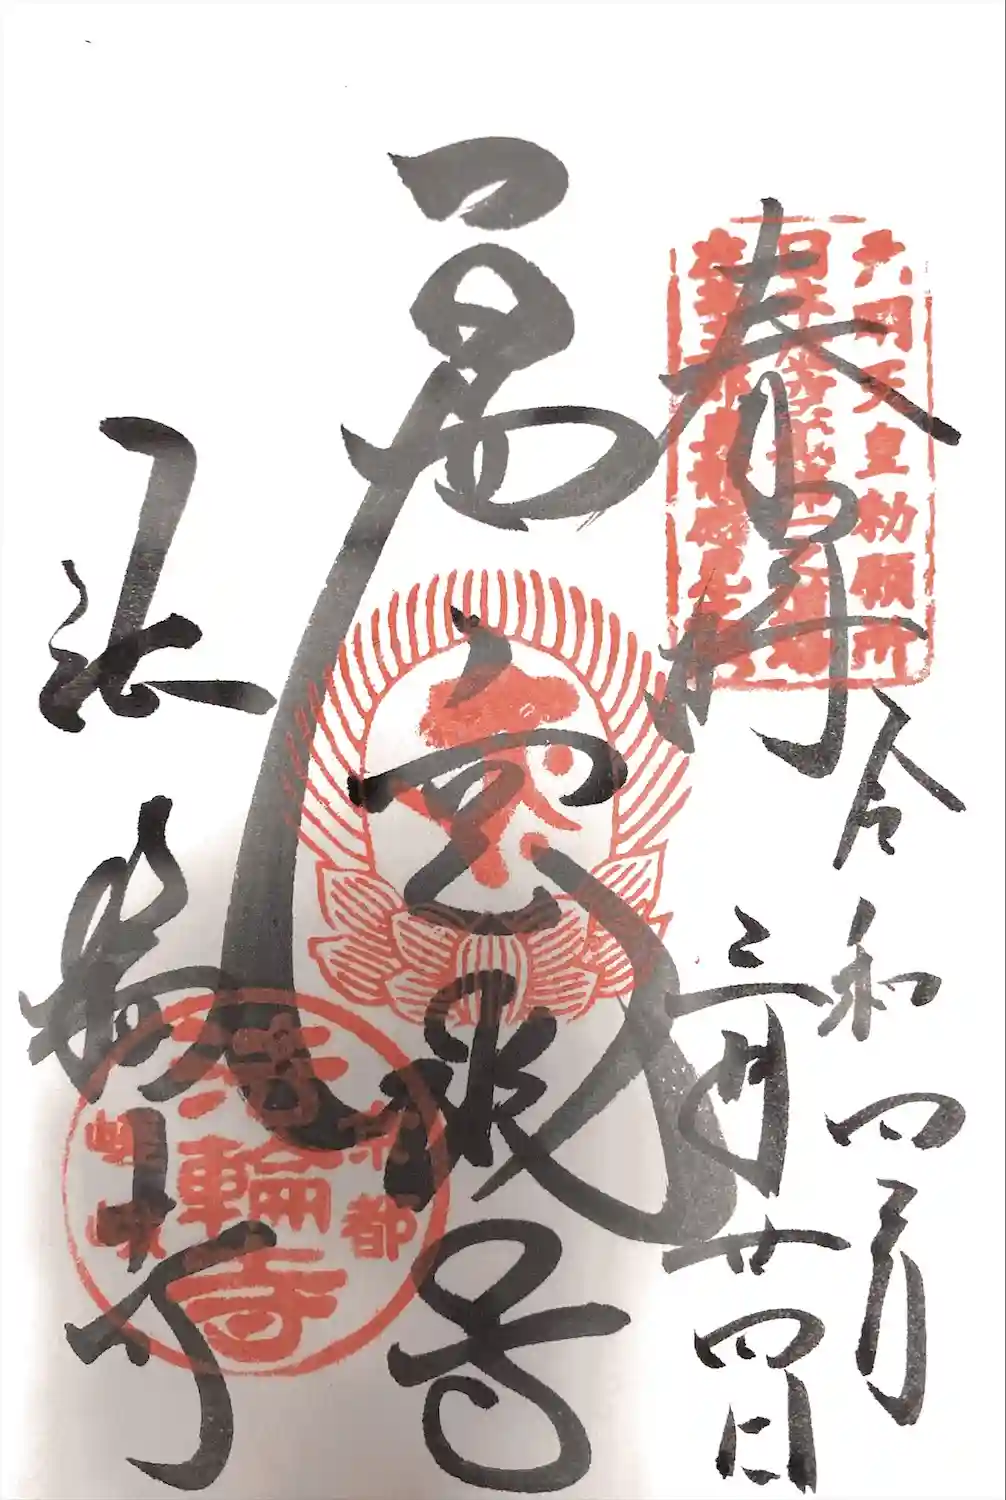 奉拝
元明天皇勅願所
令和四年
三月廿四日
虚空蔵尊
法輪寺
京都
法輪寺
嵯峨